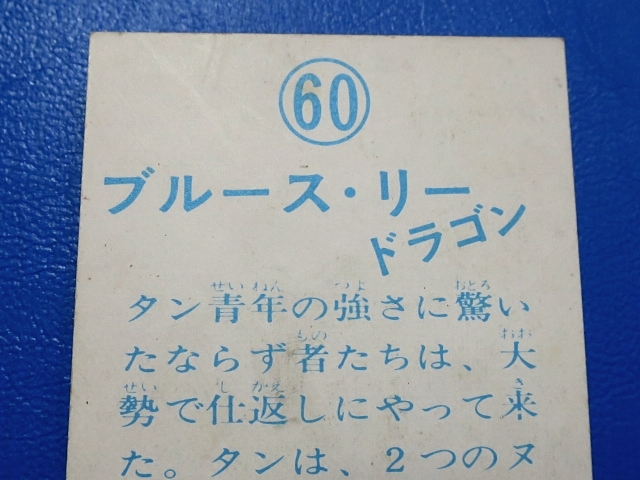 60
ブルース・リー
ドラゴン
タン青年の強さに驚い
たならず者たちは、大
勢で仕返しにやって来
た。タンは、2つのヌ